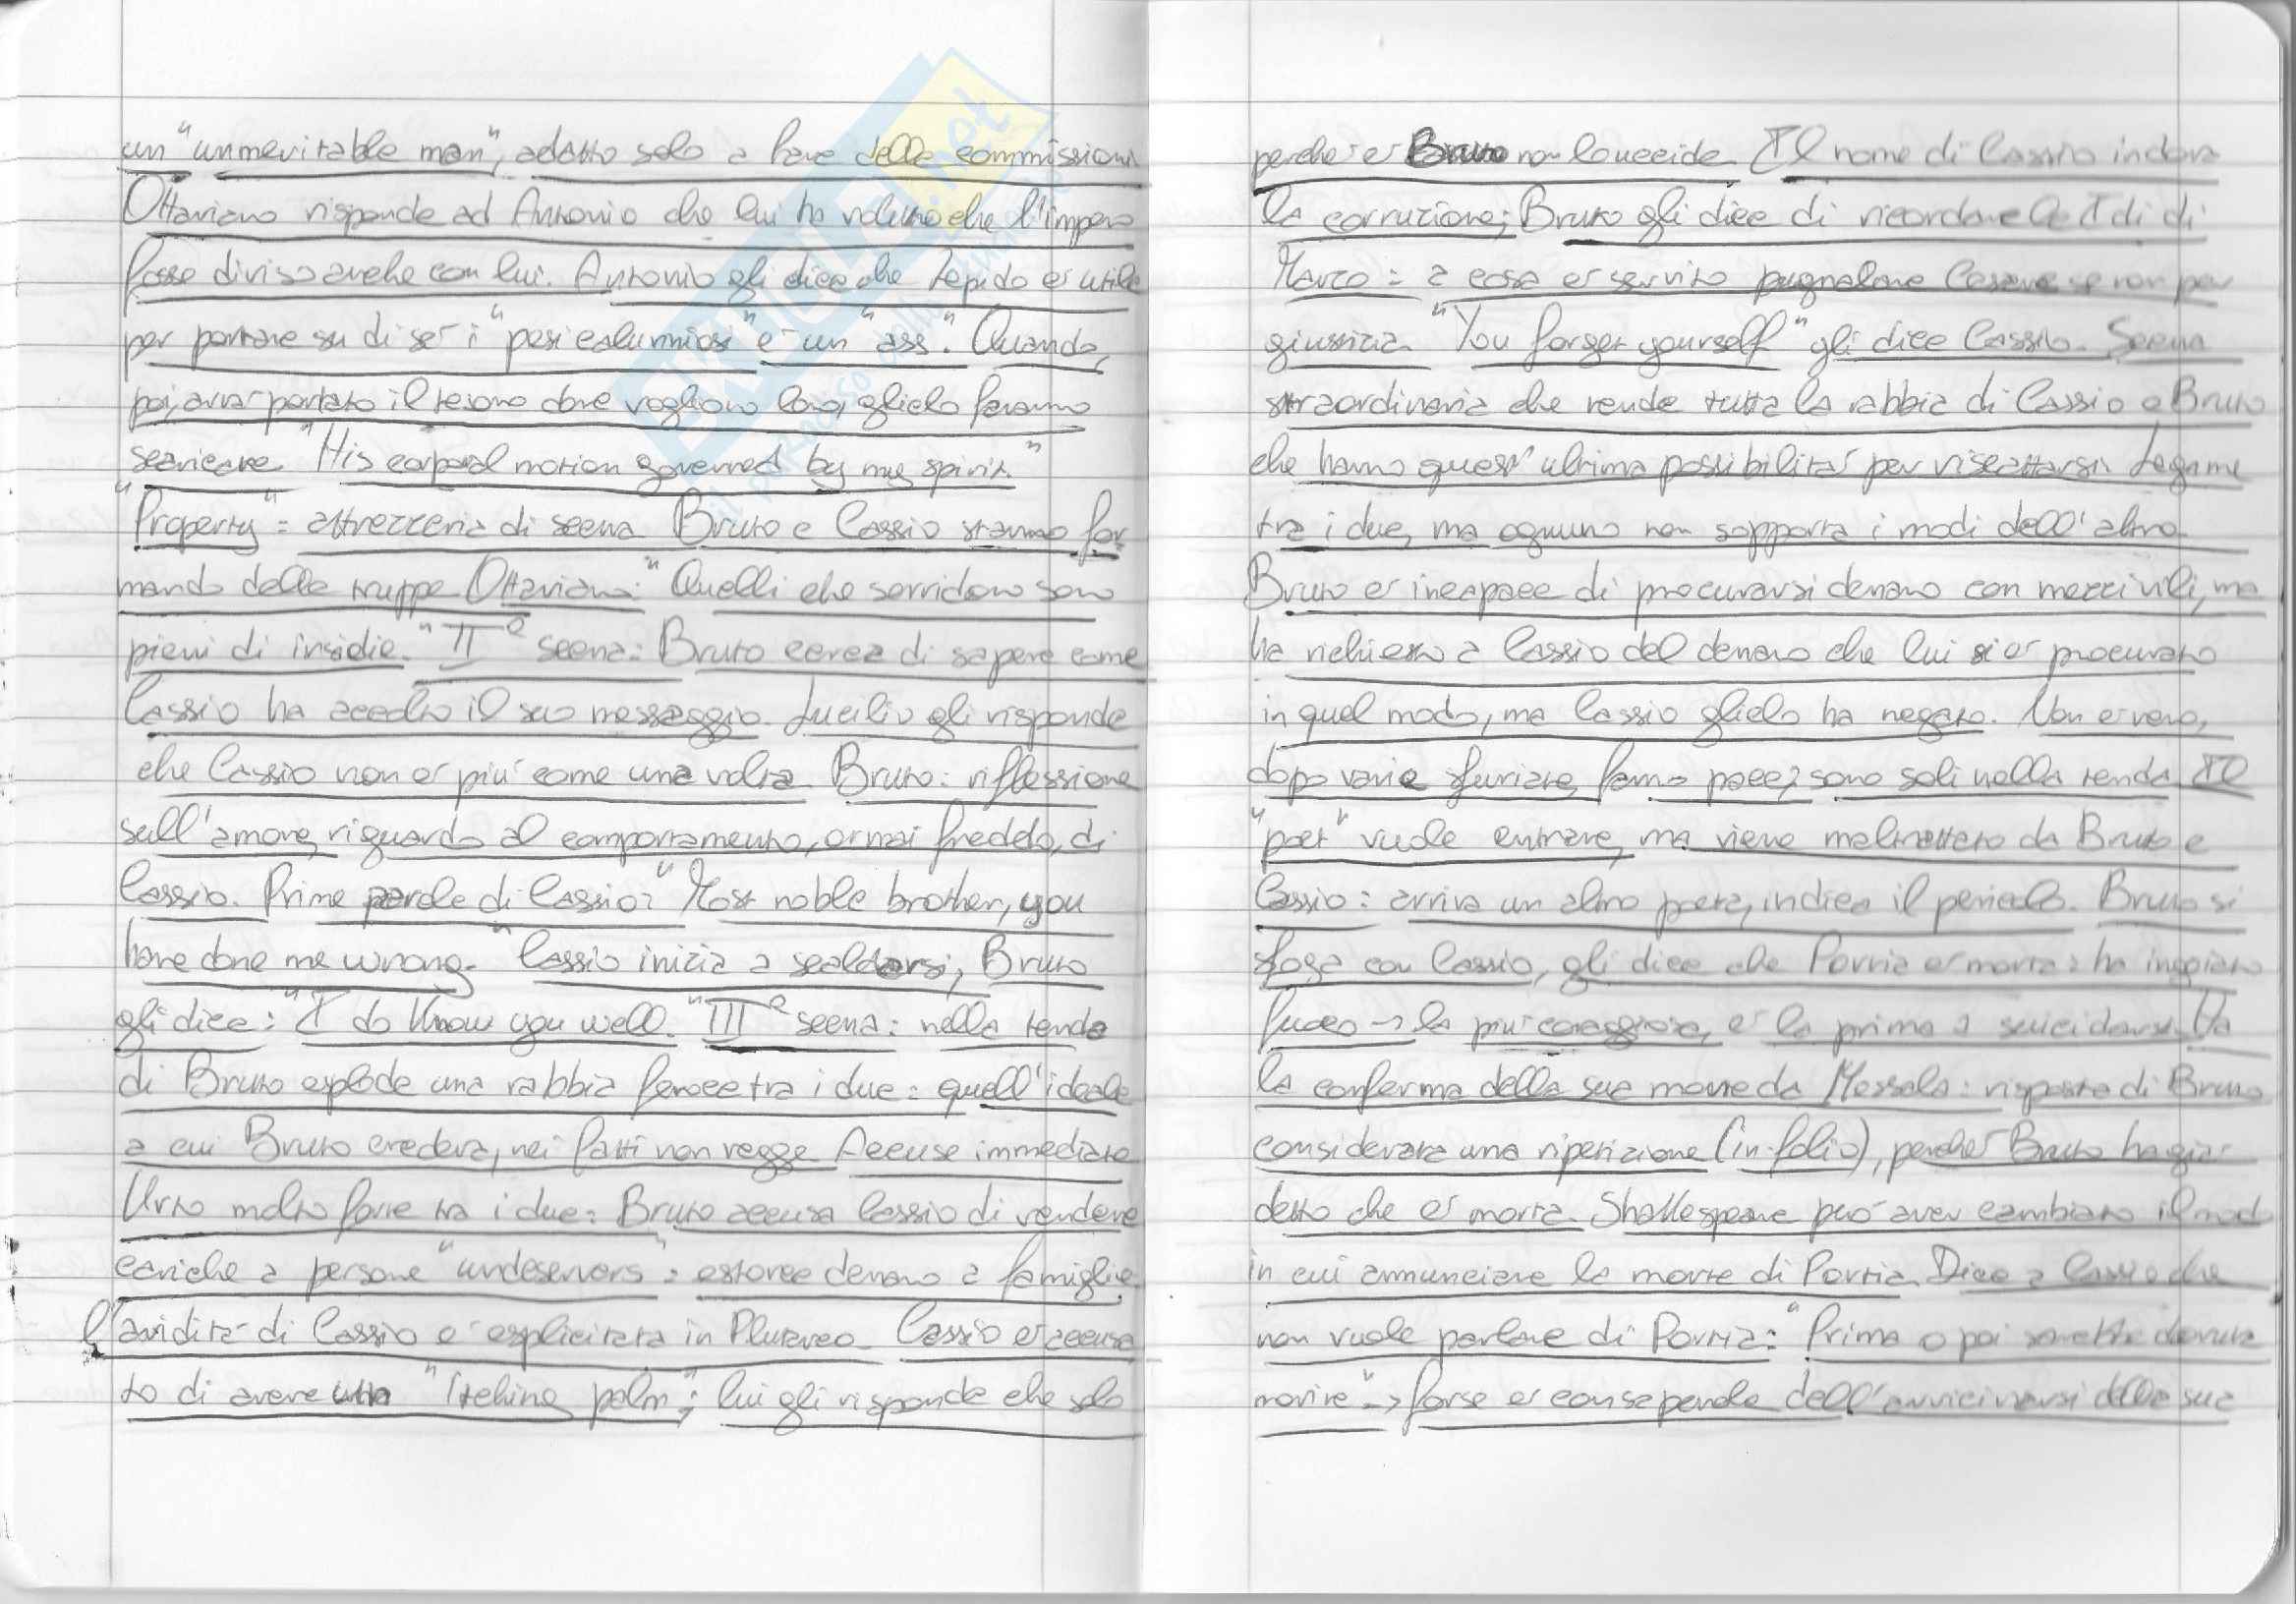 un "unmeritable man", adatto solo a fare delle commissioni
Ottaviano risponde ad Antonio che lui ha voluto che l'impero
fosse diviso anche con lui. Antonio gli dice che Lepido e' utile
per portare su di se' i "pesi calunniosi" e' un "ass". Quando,
poi, avra' portato il tesoro dove vogliono loro, glielo faranno
scaricare. "His corporal motion governed by my spirit."
"Property" = attrezzeria di scena Bruto e Cassio stanno for
mando delle truppe Ottaviano: "Quelli che sorridono sono
pieni di insidie." IIª scena: Bruto cerca di sapere come
Cassio ha accolto il suo messaggio. Lucilio gli risponde
che Cassio non e' piu' come una volta. Bruto: riflessione
sull'amore, riguardo al comportamento, ormai freddo, di
Cassio. Prime parole di Cassio: "Most noble brother, you
have done me wrong." Cassio inizia a scaldarsi, Bruto
gli dice: "I do know you well." IIIª scena: nella tenda
di Bruto esplode una rabbia feroce tra i due: quell'ideale
a cui Bruto credeva, nei fatti non regge Accuse immediate
Urto molto forte tra i due: Bruto accusa Cassio di vendere
cariche a persone "undeservers": estorce denaro a famiglie.
L'avidita' di Cassio e' esplicitata in Plutarco. Cassio e' accusa
to di avere una "Itching palm"; lui gli risponde che solo
perche' e' Bruto non lo uccide. Il nome di Cassio indora
la corruzione; Bruto gli dice di ricordare le Idi di
Marzo: a cosa e' servito pugnalare Cesare se non per
giustizia. "You forget yourself" gli dice Cassio. Scena
straordinaria che rende tutta la rabbia di Cassio e Bruto
che hanno quest'ultima possibilita' per riscattarsi. Legame
tra i due, ma ognuno non sopporta i modi dell'altro.
Bruto e' incapace di procurarsi denaro con mezzi vili, ma
ha richiesto a Cassio del denaro che lui si e' procurato
in quel modo, ma Cassio glielo ha negato. Non e' vero,
dopo varie sfuriate, fanno pace; sono soli nella tenda. Il
"poet" vuole entrare, ma viene maltrattato da Bruto e
Cassio: arriva un altro poeta, indica il pericolo. Bruto si
sfoga con Cassio, gli dice che Porzia e' morta: ha ingoiato
fuoco -> la piu' coraggiosa, e' la prima a suicidarsi. Ha
la conferma della sua morte da Messala: risposta di Bruto
considerata una ripetizione (in-folio), perche' Bruto ha gia'
detto che e' morta. Shakespeare puo' aver cambiato il mod
in cui annunciare la morte di Porzia. Dice a Cassio che
non vuole parlare di Porzia: "Prima o poi sarebbe dovuta
morire" -> forse e' consapevole dell'avvicinarsi della sua